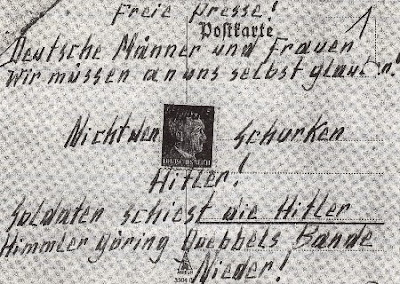 Freie Presse! 1
Postkarte
Deutsche Männer und Frauen
wir müssen an uns selbst glauben!
Nicht den Schurken
DEUTSCHES REICH
Hitler!
Soldaten schiest die Hitler
Himmler Göring Goebbels Bande
Nieder!